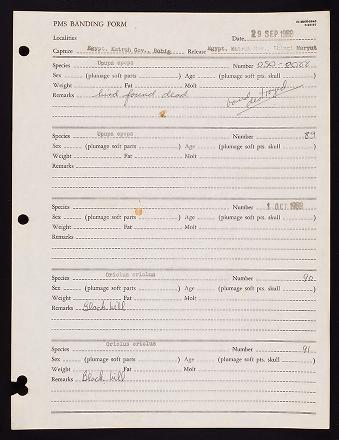 PMS BANDING FORM
Localities Date 29 SEP 1969
Capture Egypt, Matruh Gov., Release Egypt, Matruh Gov.,
Species Upupa epops Number
Sex (plumage soft parts ) Age (plumage soft pts. skull )
Weight Fat Molt
Remarks bird found dead band destroyed
Species Upupa epops Number 89
Sex (plumage soft parts ) Age (plumage soft pts. skull )
Weight Fat Molt
Remarks
Species Number 1 OCT 1969
Sex (plumage soft parts ) Age (plumage soft pts. skull )
Weight Fat Molt
Remarks
Species Oriolus oriolus Number 90
Sex (plumage soft parts ) Age (plumage soft pts. skull )
Weight Fat Molt
Remarks Black bill
Species Oriolus oriolus Number 91
Sex (plumage soft parts ) Age (plumage soft pts. skull )
Weight Fat Molt
Remarks Black bill